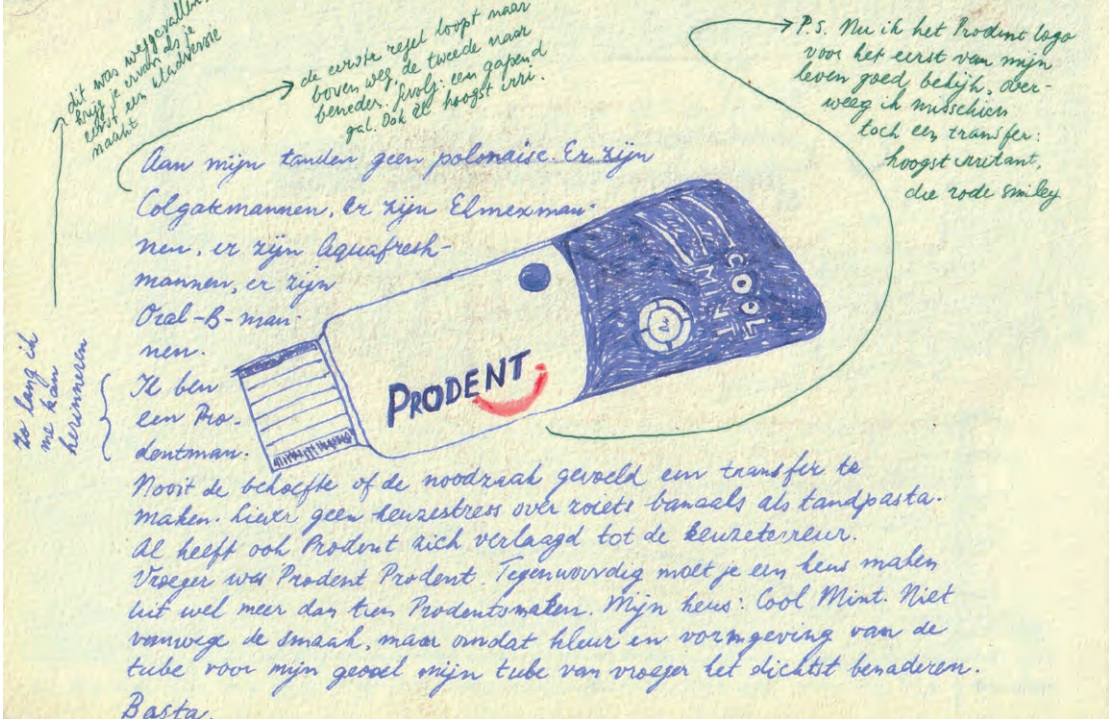 dit was weggevallen.
krijg je ervan als je
eerst een kladversie
maakt
de eerste regel loopt naar
boven weg de tweede naar
beneden. Gevolg: een gapend
gat. Ook zo hoogst irri.
P.S. Nu ik het Prodent logo
voor het eerst van mijn
leven goed bekijk, over-
weeg ik misschien
toch een transfer:
hoogst irritant,
die rode smiley
Aan mijn tanden geen polonaise. Er zijn
Colgatemannen, er zijn Elmexman-
nen, er zijn Aquafresh-
mannen, er zijn
Oral-B-man-
nen.
Zo lang ik
me kan
herinneren
Ik ben
een Pro-
dentman.
PRODENT
COOL
MINT
Nooit de behoefte of de noodzaak gevoeld een transfer te
maken. Liever geen keuzestress over zoiets banaals als tandpasta.
Al heeft ook Prodent zich verlaagd tot de keuzeterreur.
Vroeger was Prodent Prodent. Tegenwoordig moet je een keus maken
uit wel meer dan tien Prodentsmaken. Mijn keus: Cool Mint. Niet
vanwege de smaak, maar omdat kleur en vormgeving van de
tube voor mijn gevoel mijn tube van vroeger het dichtst benaderen.
Basta.